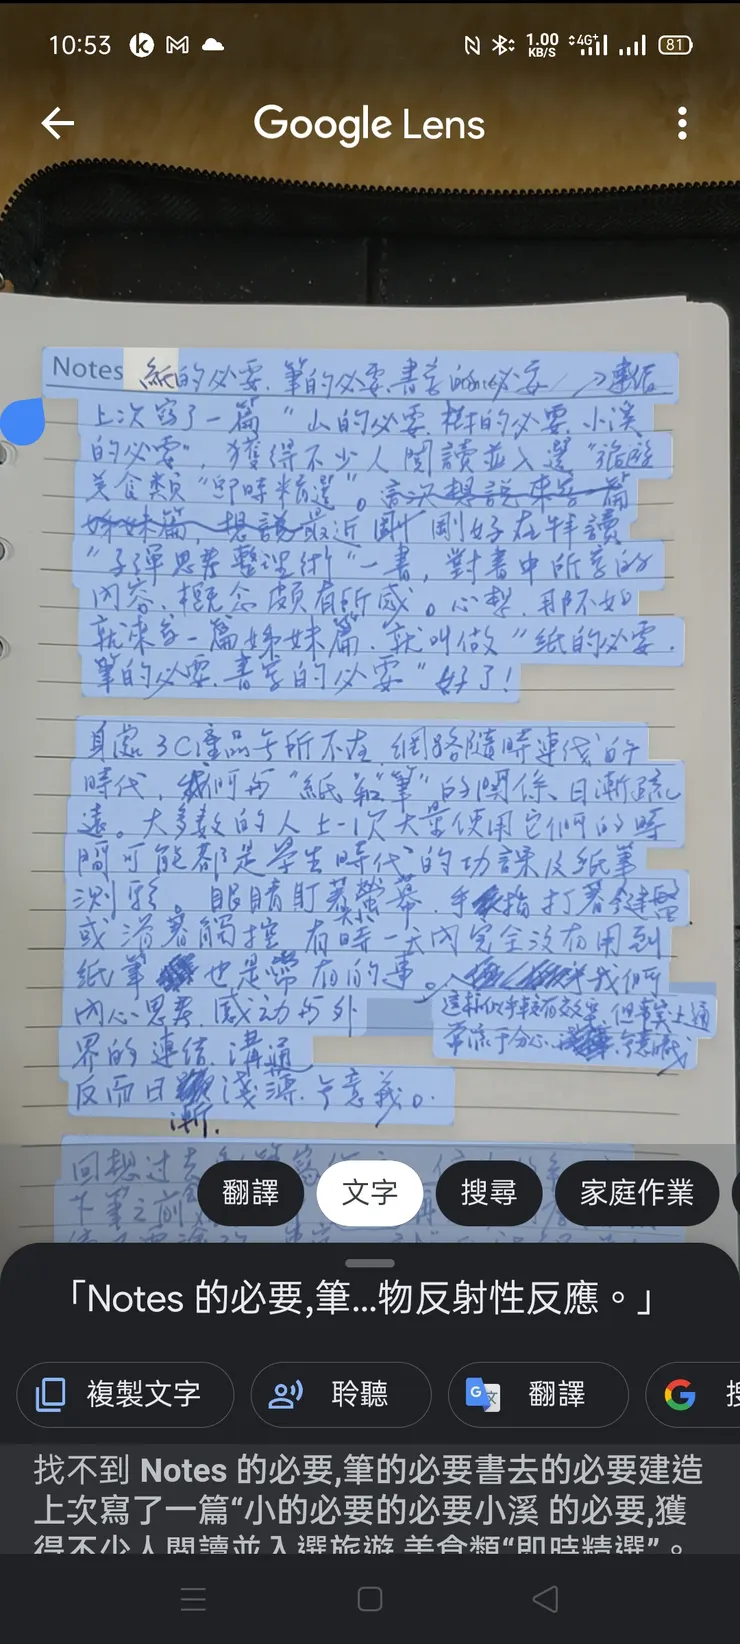 10:53
1.00 KB/S
4G+
81
Google Lens
Notes 紙的必要.筆的必要.書寫的必要 連結
上次寫了一篇“山的必要.樹的必要.小溪
的必要”,獲得不少人閱讀並入選“旅遊
美食類”即時精選”。這次想說來寫一篇
姊妹篇,想說最近剛剛好在拜讀
“子彈思考整理術”一書,對書中所寫的
內容.概念頗有所感。心想,那不如
就來寫一篇姊妹篇.就叫做“紙的必要.
筆的必要.書寫的必要”好了!
身處3C產品無所不在.網路隨時連線的
時代,我們與“紙”和“筆”的關係日漸疏
遠。大多數的人上一次大量使用它們的時
間可能都是學生時代的功課及紙筆
測驗。眼睛盯著螢幕.手指打著鍵盤
或滑著觸控.有時一天內完全沒有用到
紙筆也是常有的事。我們
內心思考.感動與外
這樣似乎較有效率,但事實上通
常流于分心
界的連結.溝通
反而日漸淺薄.無意義。
回想过去
下筆之前
翻譯
文字
搜尋
家庭作業
「Notes 的必要,筆...物反射性反應。」
複製文字
聆聽
翻譯
找不到 Notes 的必要,筆的必要書去的必要建造
上次寫了一篇“小的必要的必要小溪 的必要,獲
得不少人閱讀並入選旅遊 美食類“即時精選”。